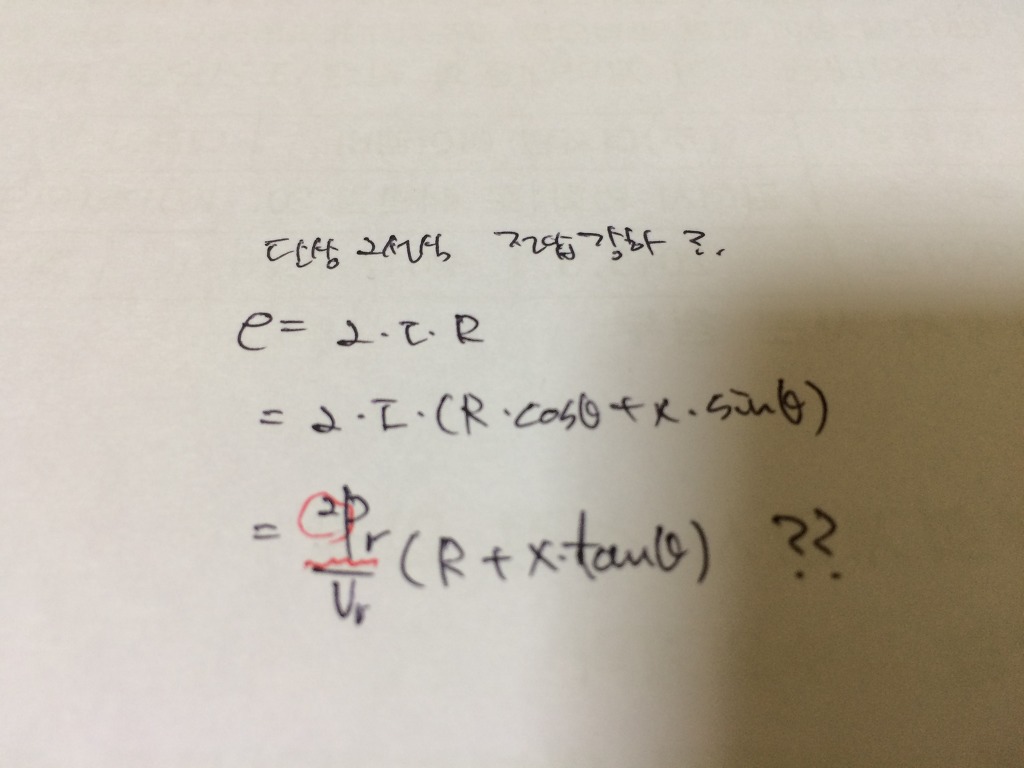 단상 2선식 전압강하 로.
e = 2·I·R
= 2·I·(R·cosθ+x·sinθ)
= 2Pr/Vr (R + x·tanθ) ??